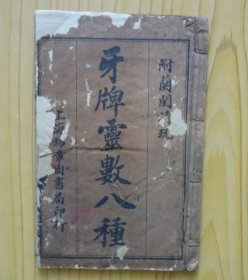 附蘭閨清玩
牙牌靈數八種
上海 圖書局印行